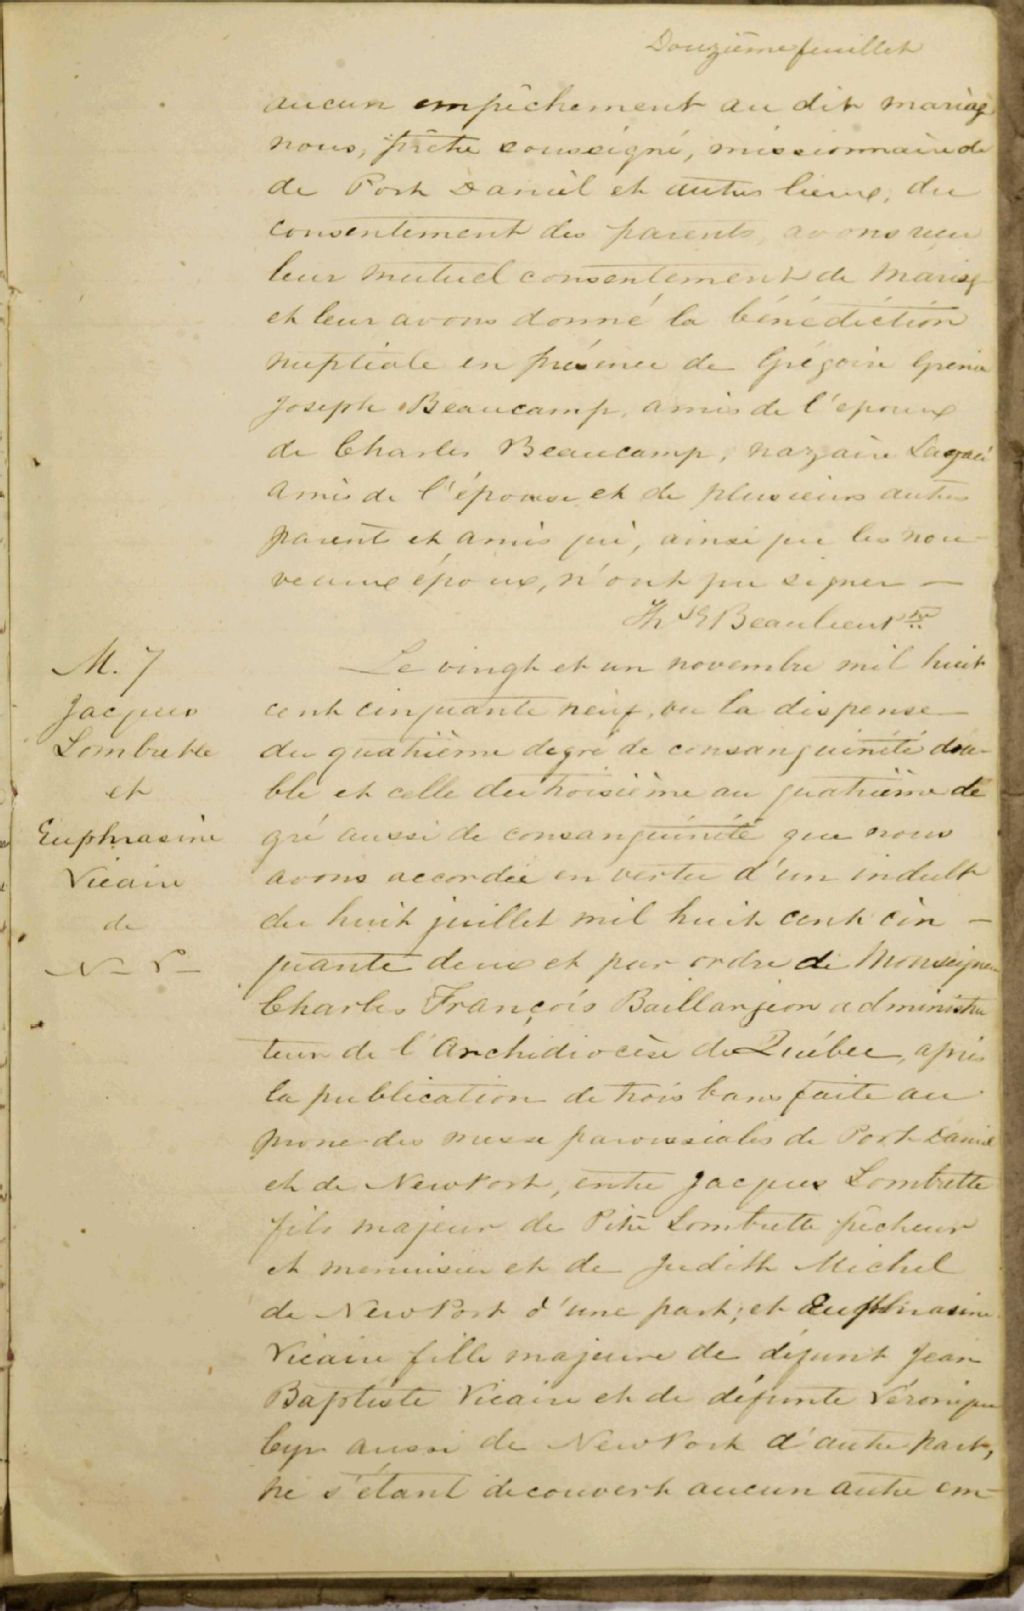 Douzième feuillet
aucun empêchement au dit mariage
nous, prêtre soussigné, missionnaire de
de Port Daniel et autres lieux, du
consentement des parents, avons reçu
leur mutuel consentement de mariage
et leur avons donné la bénédiction
nuptiale en présence de Grégoire Grenier
Joseph Beaucamp, amis de l'epoux
de Charles Beaucamp, nazaire Lagacé
amis de l'épouse et de plusieurs autres
parents et amis qui, ainsi que les nou-
veaux époux, n'ont pu signer —
Ths Beaulieu ptre
M. 7
Jacques
Lombrette
et
Euphrasine
Vicaire
de
N— P—
Le vingt et un novembre mil huit
cent cinquante neuf, vu la dispense
du quatrième degré de consanguinité dou-
ble et celle du troisième au quatrième de
gré aussi de consanguinité que nous
avons accordée en vertu d'un indult
du huit juillet mil huit cent cin —
quante deux et par ordre de Monseigneur
Charles François Baillargeon administra
teur de l'Archidiocèse de Québec, après
la publication de trois bans faite au
prone des messe paroissiales de Port Daniel
et de NewPort, entre Jacques Lombrette
fils majeur de Pitre Lombrette pêcheur
et menuisier et de Judith Michel
de NewPort d'une part; et Euphrasine
Vicaire fille majeure de défunt Jean
Baptiste Vicaire et de défunte Véronique
Cyr aussi de NewPort d'autre part,
ne s'étant découvert aucun autre em-